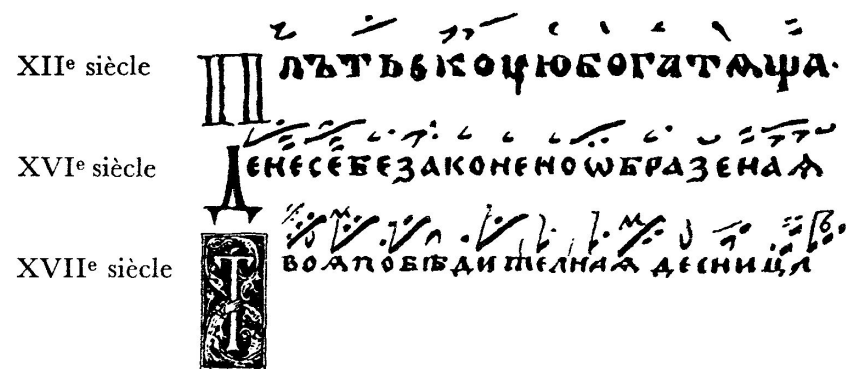 XIIe siècle ПЛЪТЬСКОЦЮБОГАТѦЩА·
XVIe siècle ДЕНЕСЕБЕЗАКОНЕНОѠБРАЗЕНАѦ
XVIIe siècle ТВОѦПОБѢДИТЕЛНАѦ ДЕСНИЦА